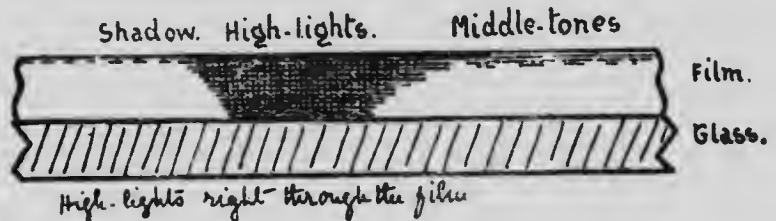 Shadow. High-lights. Middle-tones
Film.
Glass.
High-lights right through the film